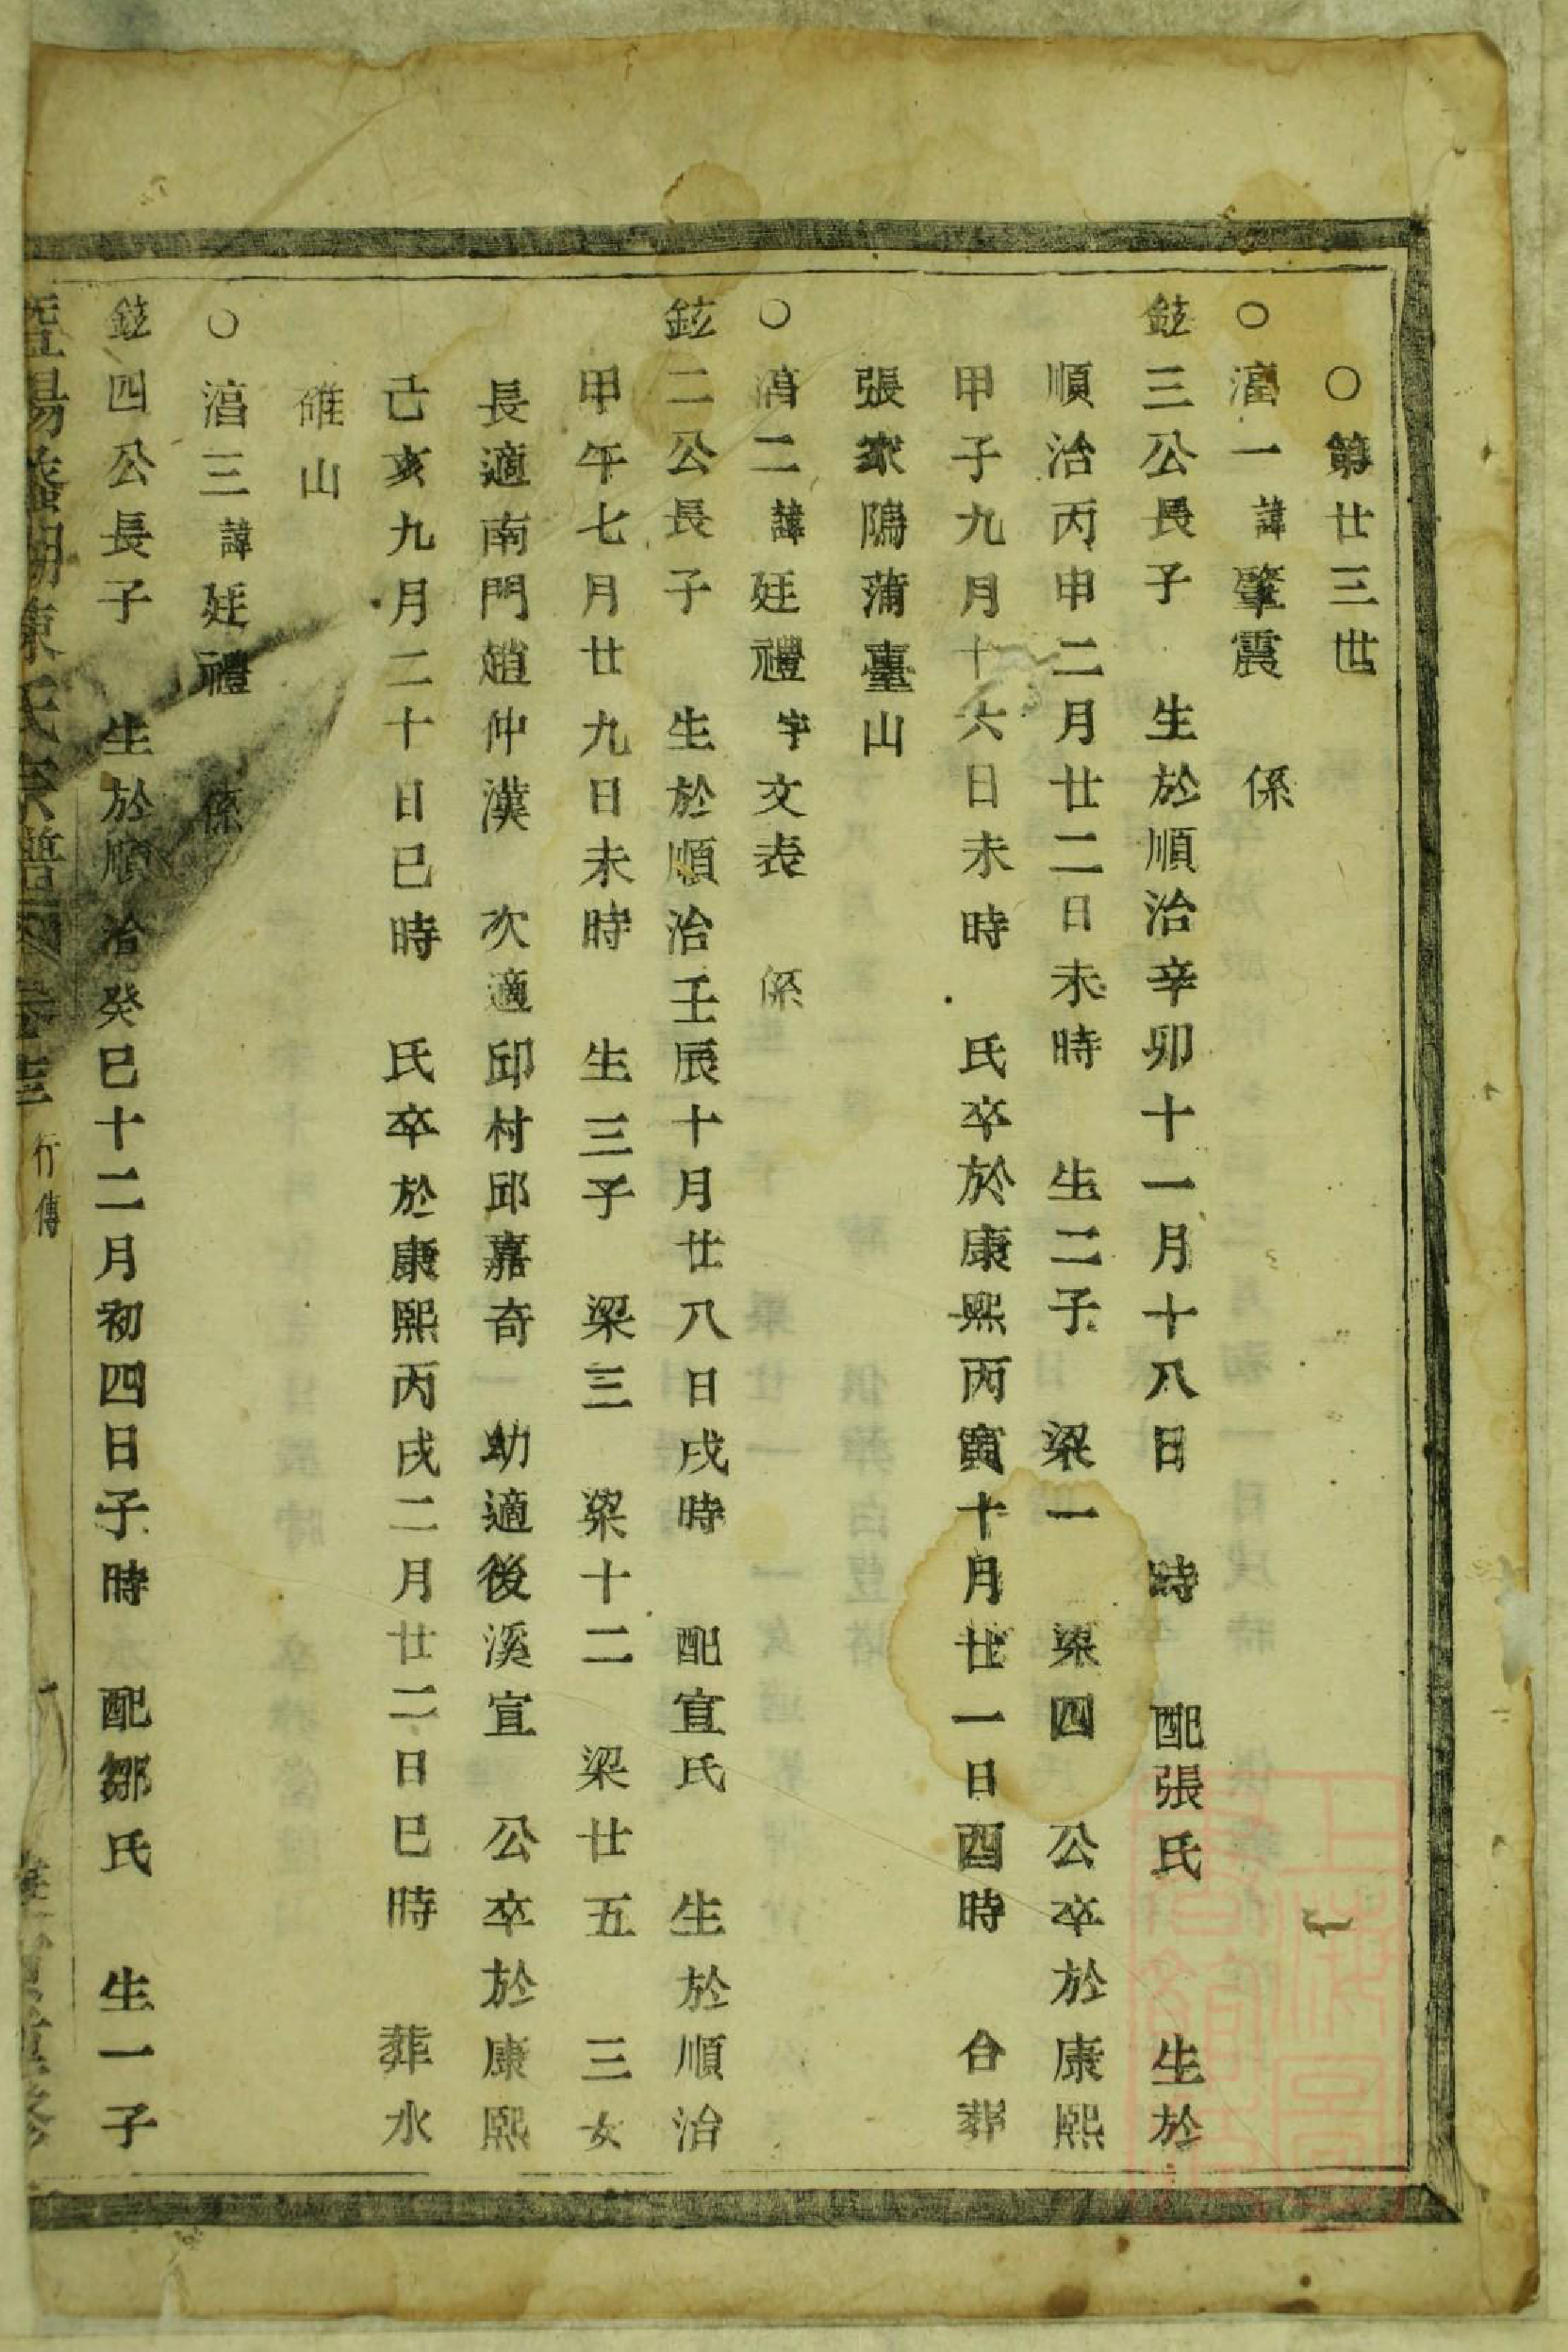 ○第廿三世
○湻一諱肇震 係
鉉三公長子 生於順治辛卯十一月十八日 時 配張氏 生於
順治丙申二月廿二日未時 生二子 梁一 梁四 公卒於康熙
甲子九月十六日未時 氏卒於康熙丙寅十月廿一日酉時 合葬
張家隝蒲臺山
○湻二諱廷禮字文表 係
鉉二公長子 生於順治壬辰十月廿八日戌時 配宣氏 生於順治
甲午七月廿九日未時 生三子 梁三 梁十二 梁廿五 三女
長適南門趙仲漢 次適邱村邱嘉奇 幼適後溪宣 公卒於康熙
己亥九月二十日巳時 氏卒於康熙丙戌二月廿二日巳時 葬水
碓山
○湻三諱廷禮 係
鉉四公長子 生於順治癸巳十二月初四日子時 配鄒氏 生一子
暨陽 湖陳氏宗譜 卷 行傳
上海圖書館藏